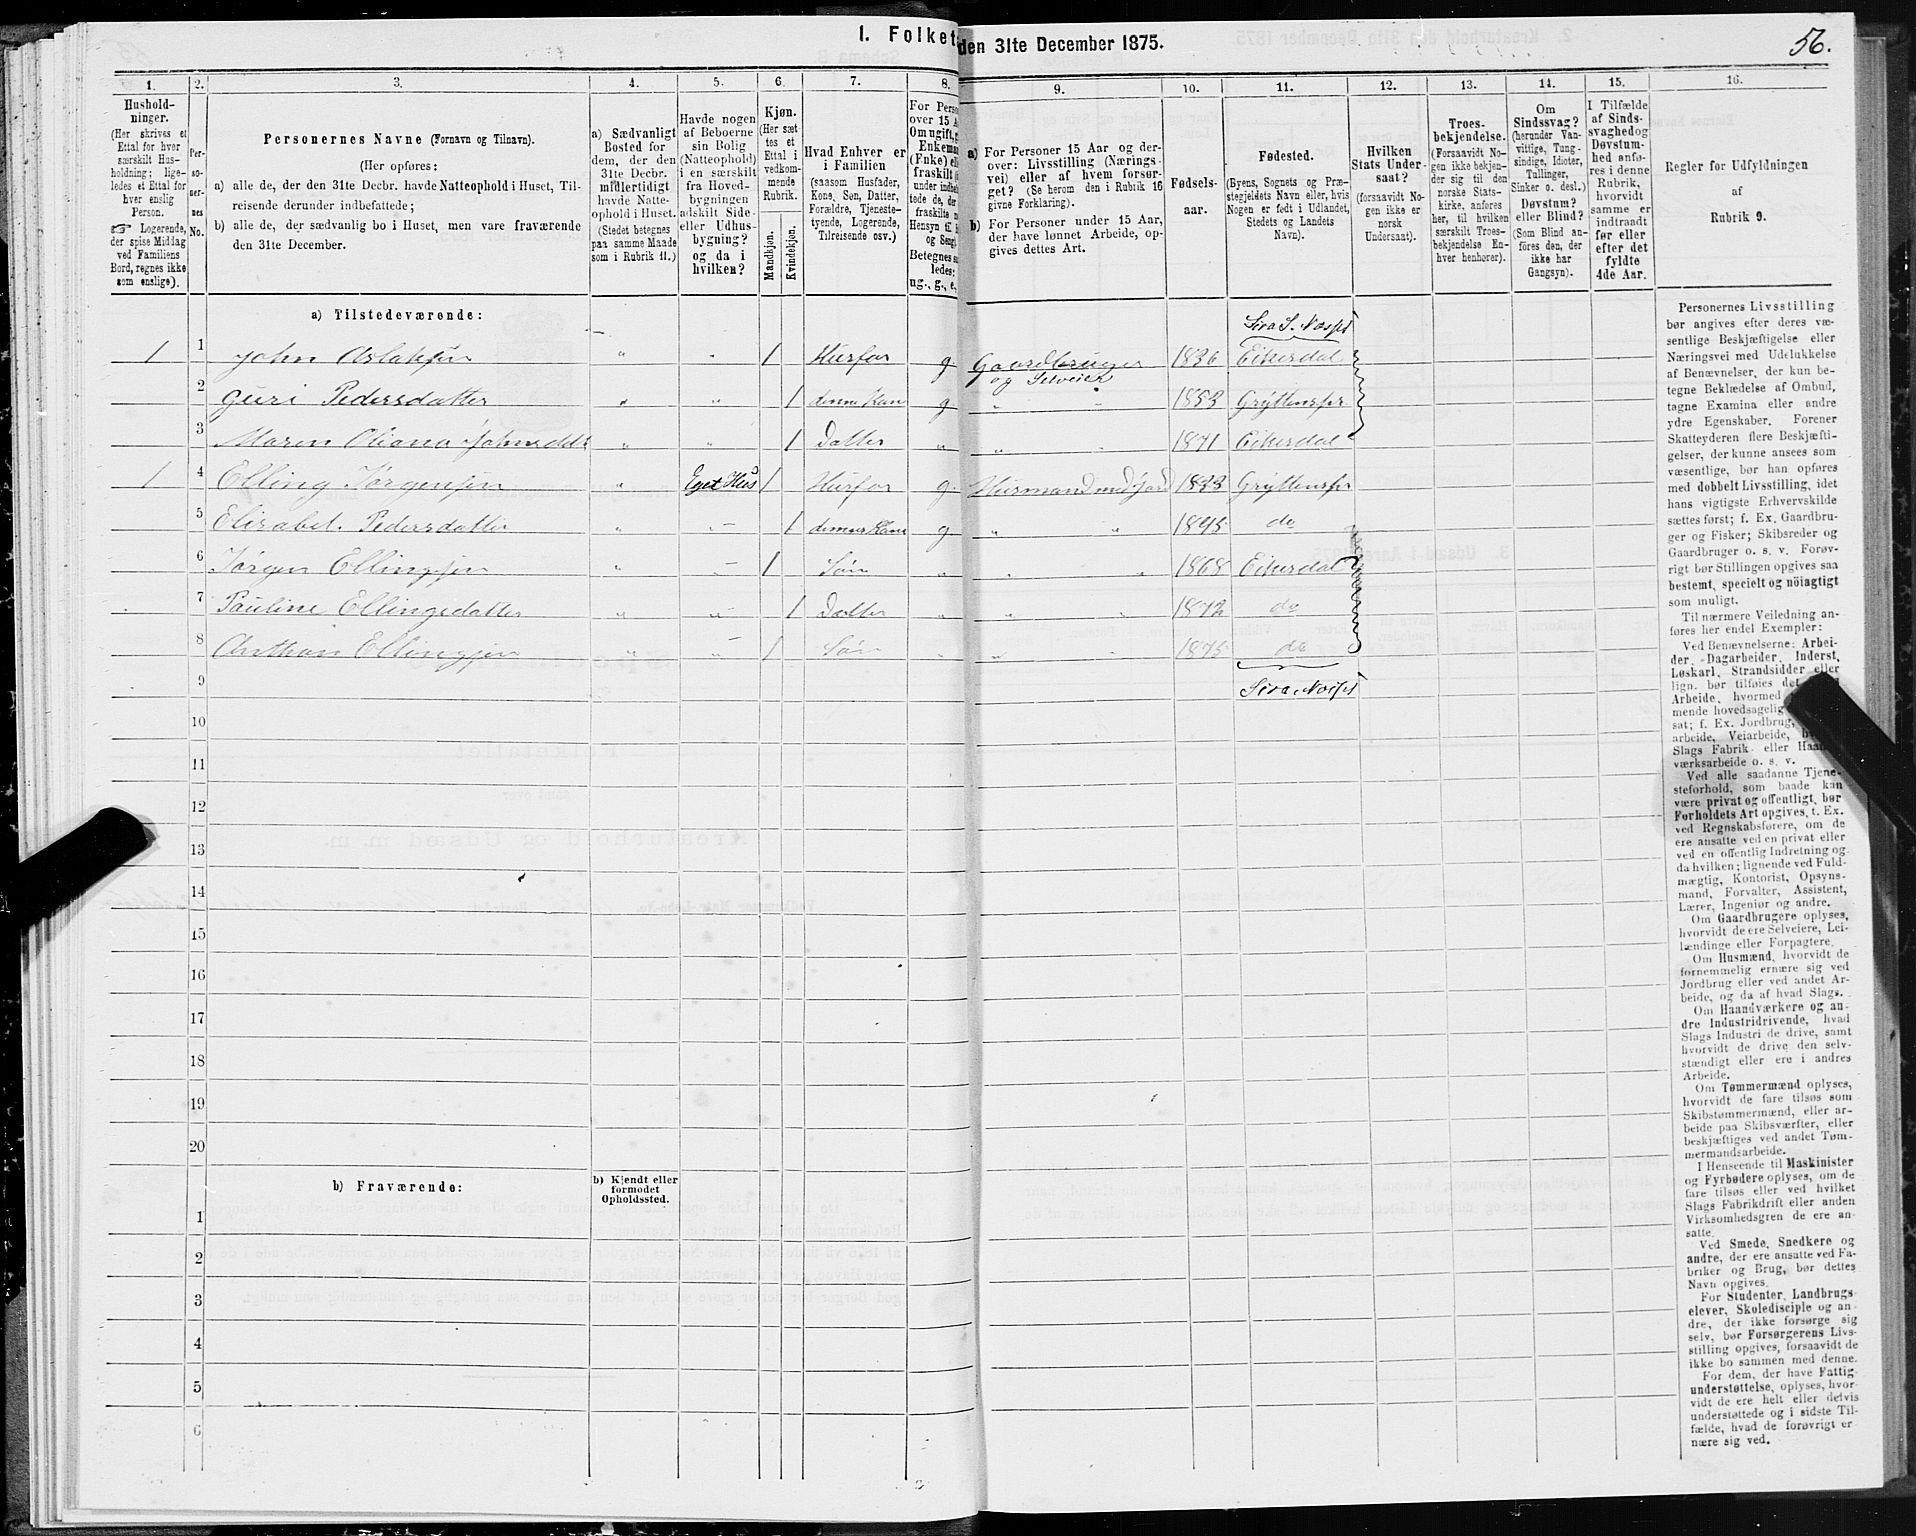 1. Folket
den 31te December 1875.
56.
1. 2. 3. 4. 5. 6. 7. 8. 9. 10. 11. 12. 13. 14. 15. 16.
Hushold-
ninger.
(Her skrives et
Ettal for hver
særskilt Hus-
holdning; lige-
ledes et Ettal for
hver enslig
Person.
☞ Logerende,
der spise Middag
ved Familiens
Bord, regnes ikke
som enslige).
Per-
so-
ner-
nes
No.
Personernes Navne (Fornavn og Tilnavn).
(Her opføres:
a) alle de, der den 31te Decbr. havde Natteophold i Huset, Til-
reisende derunder indbefattede;
b) alle de, der sædvanlig bo i Huset, men vare fraværende
den 31te December.
a) Sædvanligt
Bosted for
dem, der den
31te Decbr.
midlertidigt
havde Natte-
ophold i Huset.
(Stedet betegnes
paa samme Maade
som i Rubrik 11.)
Havde nogen
af Beboerne
sin Bolig
(Natteophold)
i en særskilt
fra Hoved-
bygningen
adskilt Side-
eller Udhus-
bygning?
og da i
hvilken?
Kjøn.
(Her sæt-
tes et
Ettal i
vedkom-
mende
Rubrik.
Mandkjøn.
Kvindekjøn.
Hvad Enhver er
i Familien
(saasom Husfader,
Kone, Søn, Datter,
Forældre, Tjeneste-
tyende, Logerende,
Tilreisende osv.)
For Perso
over 15 A
Om ugift, g
Enkeman
(Fnke) ell
fraskilt
under indbe
tode de, der
fraskilte
Hensyn til
og Seng
Betegnes sa
ledes:
ug., g., e.,
a) For Personer 15 Aar og der-
over: Livsstilling (Nærings-
vei) eller af hvem forsør-
get? (Se herom den i Rubrik 16
givne Forklaring).
b) For Personer under 15 Aar,
der have lønnet Arbeide, op-
gives dettes Art.
Fødsels-
aar.
Fødested.
(Byens, Sognets og Præ-
stegjeldets Navn eller, hvis
Nogen er født i Udlandet,
Stedets og Landets
Navn).
Hvilken
Stats Under-
saat?
(forsaavidt No-
gen ikke er
norsk
Undersaat).
Troes-
bekjendelse.
(Forsaavidt No-
gen ikke bekjen-
der sig til den
norske Stats-
kirke, anføres
her, til hvilken
særskilt Troes-
bekjendelse En-
hver henhører).
Om
Sindssvag?
(herunder Van-
vittige, Tung-
sindige, Idioter,
Tullinger,
Sinker o. desl.)
Døvstum?
eller Blind?
(Som Blind an-
føres den, der
ikke har
Gangsyn).
I Tilfælde
af Sinds-
svaghed og
Døvstum-
hed anfø-
res i denne
Rubrik,
hvorvidt
samme er
indtraadt
før eller
efter det
fyldte
4de Aar.
Regler for Udfyldningen
af
Rubrik 9.
a) Tilstedeværende:
Sira S. Næsset
1 1 John Aslaksen " " 1 Husfar g. Gaardbruger 1836 Eikesdal
og Selveier
2 Guri Pedersdatter " " 1 dennes Kane g. " " 1853 Gryttenspr.
3 Maren Oliana Johnsdtt " " 1 Datter " " 1871 Eikesdal
1 4 Elling Jørgensen " Eget Hus 1 Husfar g. Husmand med jord 1833 Gryttenspr
5 Elisabet. Pedersdatter " " 1 dennes Kane g " " 1845 do
6 Jørgen Ellingsen " " 1 Søn " " " 1868 Eikesdal
7 Pauline Ellingsdatter " " 1 Datter " " " 1872 do
8 Anthon Ellingsen " " 1 Søn " " " 1875 do
9 Sira Næsset
10
11
12
13
14
15
16
17
18
19
20
b) Fraværende:
b) Kjendt eller
formodet
Opholdssted.
1
2
3
4
5
6
Personernes Livsstilling
bør angives efter deres væ-
sentlige Beskjæftigelse eller
Næringsvei med Udelukkelse
af Benævnelser, der kun be-
tegne Beklædelse af Ombud,
tagne Examina eller andre
ydre Egenskaber. Forener
Skatteyderen flere Beskjæfti-
gelser, der kunne ansees som
væsentlige, bør han opføres
med dobbelt Livsstilling, idet
hans vigtigste Erhvervskilde
sættes først; f. Ex. Gaardbru-
ger og Fisker; Skibsreder og
Gaardbruger o. s. v. Forøv-
rigt bør Stillingen opgives saa
bestemt, specielt og nøiagtigt
som muligt.
Til nærmere Veiledning an-
føres her endel Exempler:
Ved Benævnelserne: Arbei-
der, Dagarbeider, Inderst,
Løskarl, Strandsidder eller
lign. bør tilføies det
Arbeide, hvormed
mende hovedsagelig
sat; f. Ex. Jordbrug,
arbeide, Veiarbeide,
Slags Fabrik- eller Haand-
værksarbeide o. s. v.
Ved alle saadanne Tjene-
steforhold, som baade kan
være privat og offentligt, bør
Forholdets Art opgives, t. Ex.
ved Regnskabsførere, om de
ere ansatte ved en privat eller
ved en offentlig Indretning og
da hvilken; lignende ved Fuld-
mægtig, Kontorist, Opsyns-
mand, Forvalter, Assistent,
Lærer, Ingeniør og andre.
Om Gaardbrugere oplyses,
hvorvidt de ere Selveiere, Lei-
lændinge eller Forpagtere.
Om Husmænd, hvorvidt de
fornemmelig ernære sig ved
Jordbrug eller ved andet Ar-
beide, og da af hvad Slags.
Om Haandværkere og an-
dre Industridrivende, hvad
Slags Industri de drive, samt
hvorvidt de drive den selv-
stændigt eller ere i andres
Arbeide.
Om Tømmermænd oplyses,
hvorvidt de fare tilsøs som
Skibstømmermænd, eller ar-
beide paa Skibsværfter, eller
beskjæftiges ved andet Tøm-
mermandsarbeide.
I Henseende til Maskinister
og Fyrbødere oplyses, om de
fare tilsøs eller ved hvilket
Slags Fabrikdrift eller anden
Virksomhedsgren de ere an-
satte.
Ved Smede, Snedkere og
andre, der ere ansatte ved Fa-
briker og Brug, bør dettes
Navn opgives.
For Studenter, Landbrugs-
elever, Skoledisciple og an-
dre, der ikke forsørge sig
selv, bør Forsørgerens Livs-
stilling opgives, forsaavidt de
ikke bo sammen med denne.
For dem, der have Fattig-
understøttelse, oplyses, hvor-
vidt de ere helt eller delvis
understøttede og i sidste Til-
fælde, hvad de forøvrigt er-
nære sig ved.